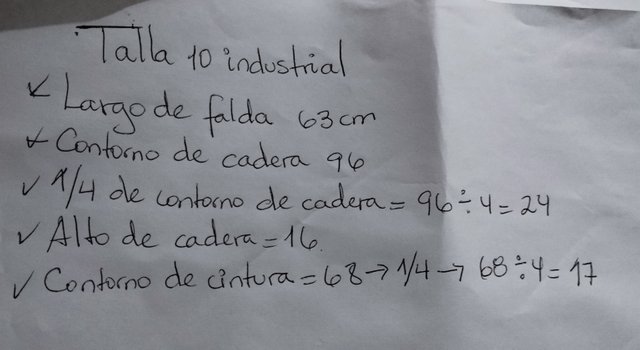 Talla 10 industrial
✓ Largo de falda 63cm
✓ Contorno de cadera 96
✓ 1/4 de contorno de cadera = 96÷4=24
✓ Alto de cadera = 16.
✓ Contorno de cintura = 68 → 1/4 → 68÷4=17